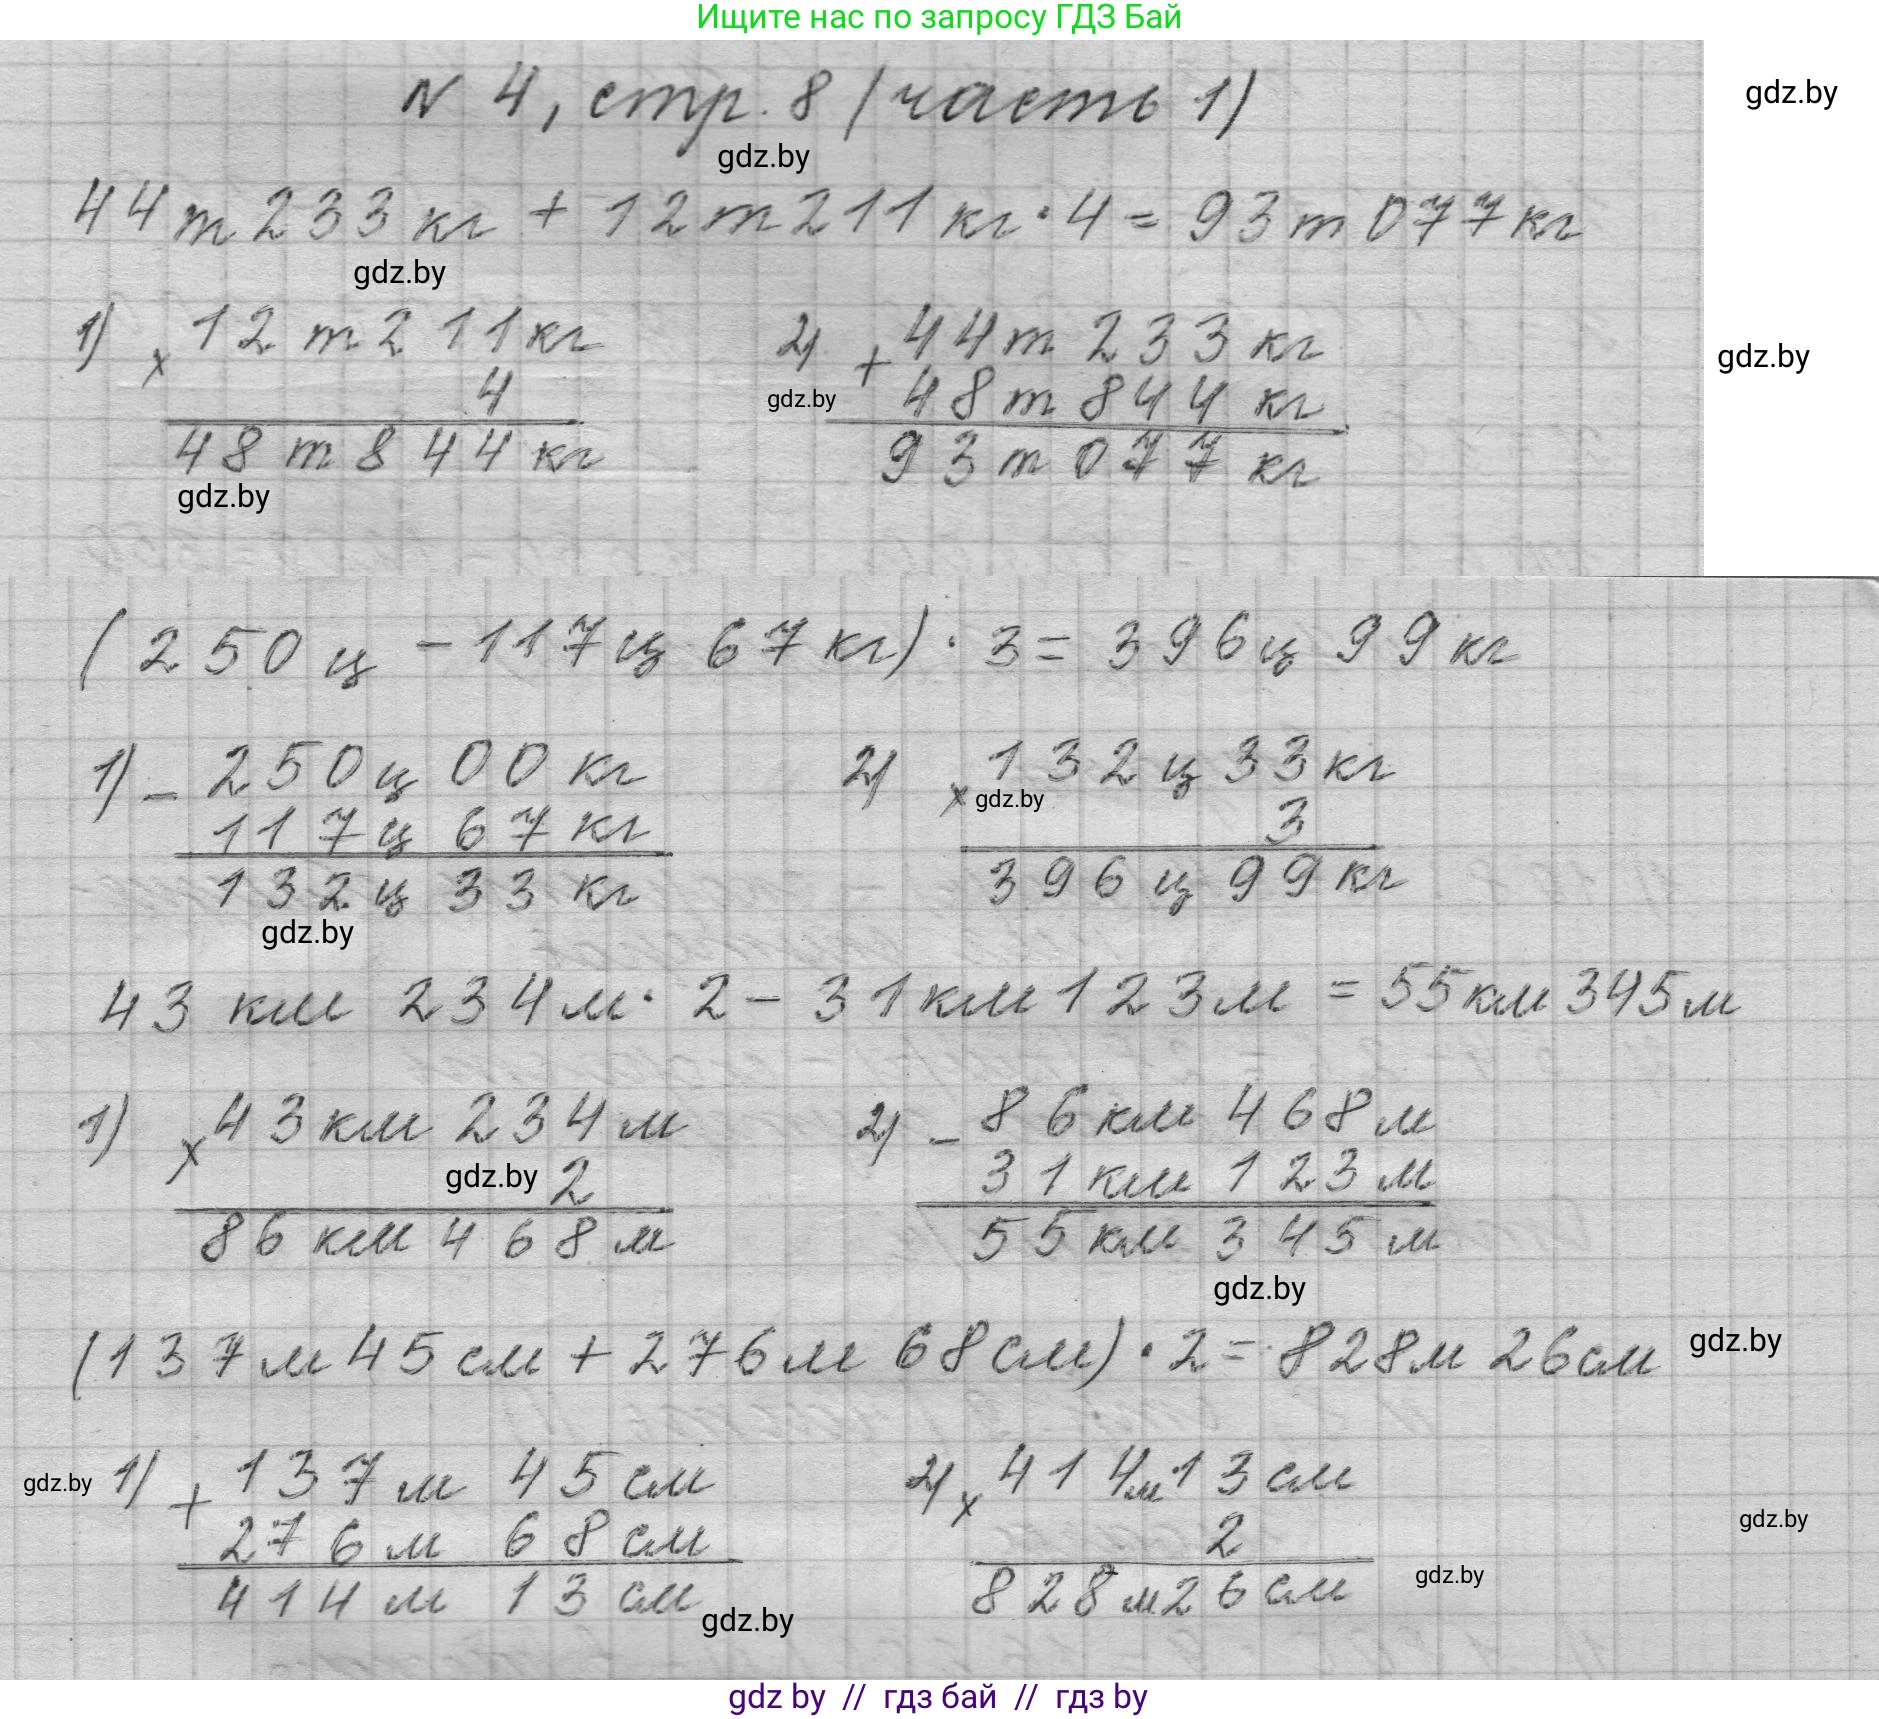 Ищите нас по запросу ГДЗ Бай
N 4, стр. 8 (часть 1)
gdz.by
gdz.by
44 т 233 кг + 12 т 211 кг · 4 = 93 т 077 кг
gdz.by
1) × 12 т 211 кг
2) + 44 т 233 кг
gdz.by
4
gdz.by
48 т 844 кг
48 т 844 кг
93 т 077 кг
gdz.by
(250 ц - 117 ц 67 кг) · 3 = 396 ц 99 кг
1) - 250 ц 00 кг
2) × 132 ц 33 кг
gdz.by
117 ц 67 кг
3
132 ц 33 кг
396 ц 99 кг
gdz.by
43 км 234 м · 2 - 31 км 123 м = 55 км 345 м
1) × 43 км 234 м
2) - 86 км 468 м
gdz.by
2
31 км 123 м
86 км 468 м
55 км 345 м
gdz.by
(137 м 45 см + 276 м 68 см) · 2 = 828 м 26 см
gdz.by
gdz.by
1) + 137 м 45 см
2) × 414 м 13 см
276 м 68 см
2
gdz.by
414 м 13 см
828 м 26 см
gdz.by
gdz.by
gdz by // гдз бай // гдз by